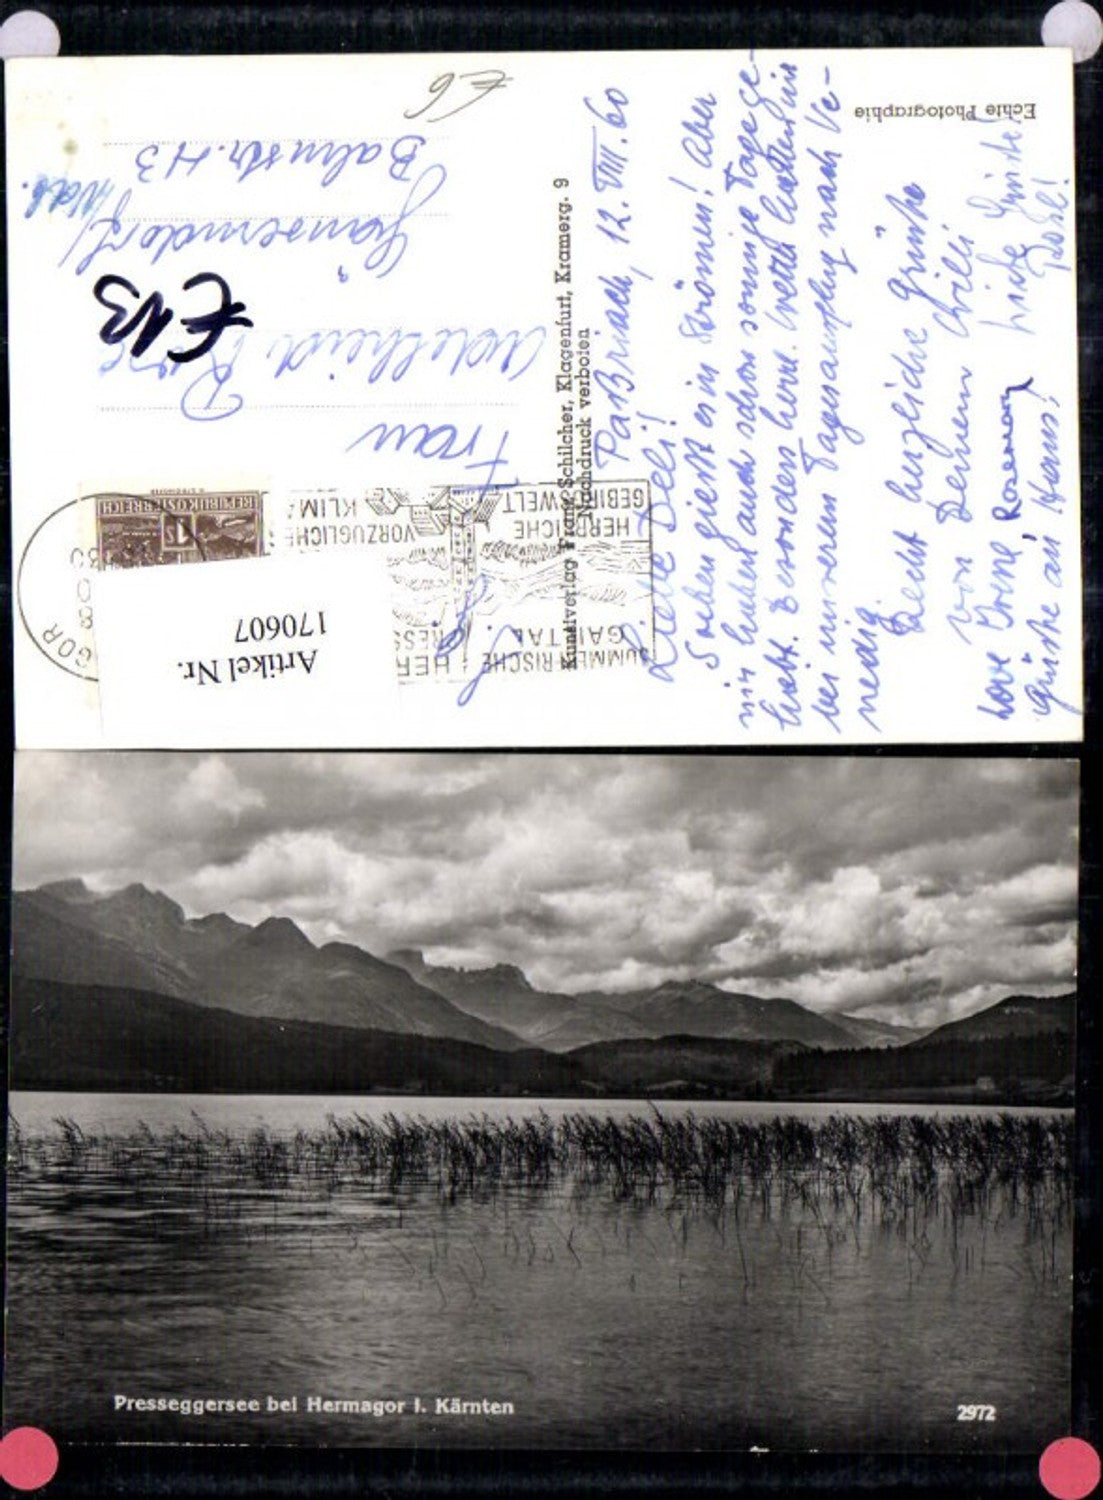 Echte Photographie
Paßriach, 12. VIII. 60
Liebe Deli!
Soeben gießt es in Strömen! Aber
wir haben auch schon sonnige Tage ge-
habt. Besonders herrl. Wetter hatten wir
bei unserem Tagesausflug nach Ve-
nedig.
Recht herzliche Grüße
von Deinem Willi
Irene, Rosemarie
Liebe Grüße
Grüße an Hans!
Kunstverlag Franz Schilcher, Klagenfurt, Kramerg. 9
Nachdruck verboten
Frau
Adelheid
Gänserndorf
Bahnstr. 43
€6
€13
REPUBLIK ÖSTERREICH
1 S
VORZÜGLICHE
KLIMA
HERRLICHE
GEBIRGSWELT
SOMMERFRISCHE
GAILTAL
HER
RESS
GOR
Artikel Nr.
170607
Presseggersee bei Hermagor i. Kärnten
2972